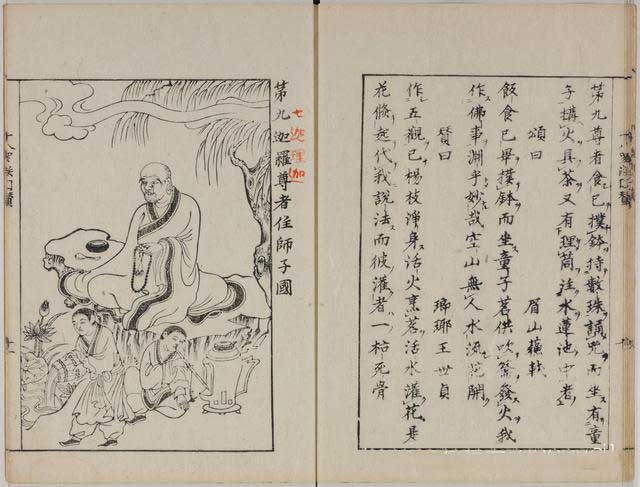 第九尊者食已撲鉢持數珠誦咒而坐有童
子搆火具茶又有理筒注水蓮池中者
頌曰　眉山蘓軾
飯食已畢撲鉢而坐童子茗供吹籥發火我
作佛事淵乎妙哉空山無人水流花開
贊曰　瑯琊王世貞
作五觀已楊枝淨身活火烹茗活水灌花是
花倏迩代我說法而彼灌者一枯死骨
第九迦羅尊者住師子國
七迦理伽